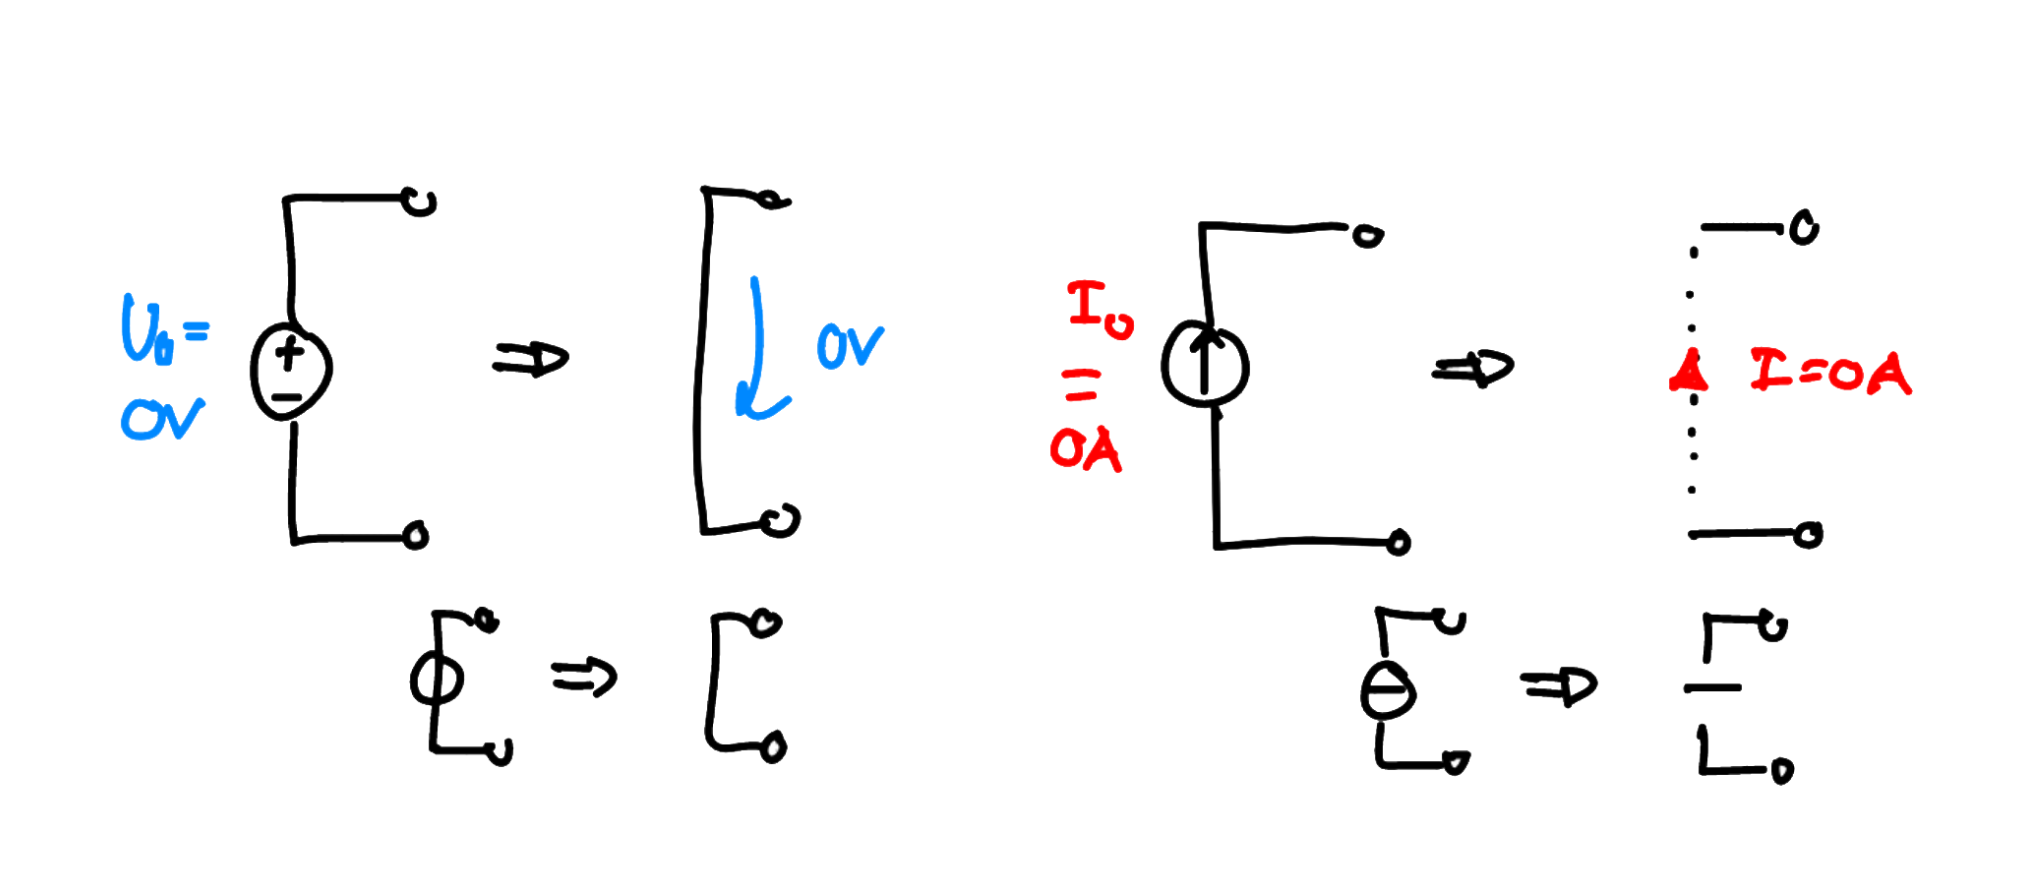 U₀=
0V
0V
I₀
=
0A
I=0A